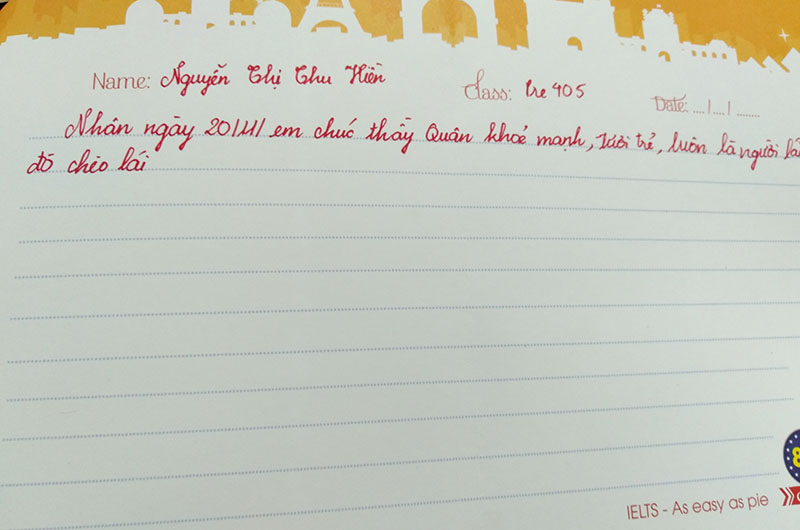 Name: Nguyễn Thị Thu Hiền Class: Pre 405 Date: .../.../......
Nhân ngày 20/11/ em chúc thầy Quân khoẻ mạnh, tươi trẻ, luôn là người lái
đò chèo lái
IELTS - As easy as pie